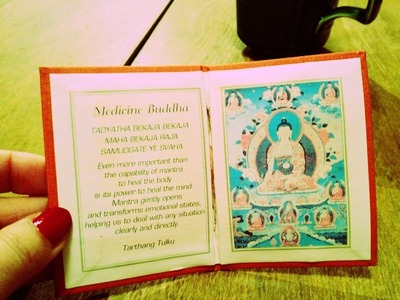 Medicine Buddha
TADYATHA BEKAJA BEKAJA
MAHA BEKAJA RAJA
SAMUDGATE YE SVAHA
Even more important than
the capability of mantra
to heal the body
is its power to heal the mind.
Mantra gently opens
and transforms emotional states,
helping us to deal with any situation
clearly and directly.
Tarthang Tulku